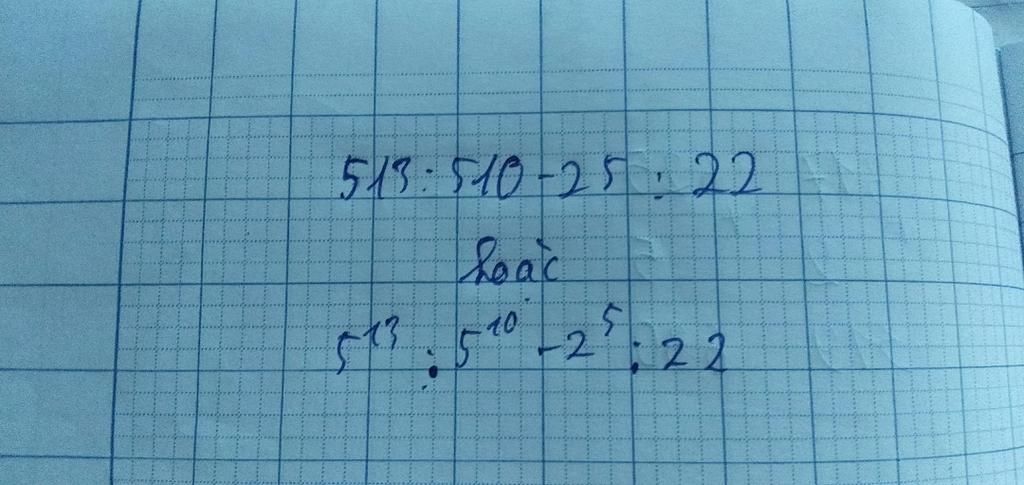 513 : 510 - 25 : 22
hoặc
5¹³ : 5¹⁰ - 2⁵ : 22